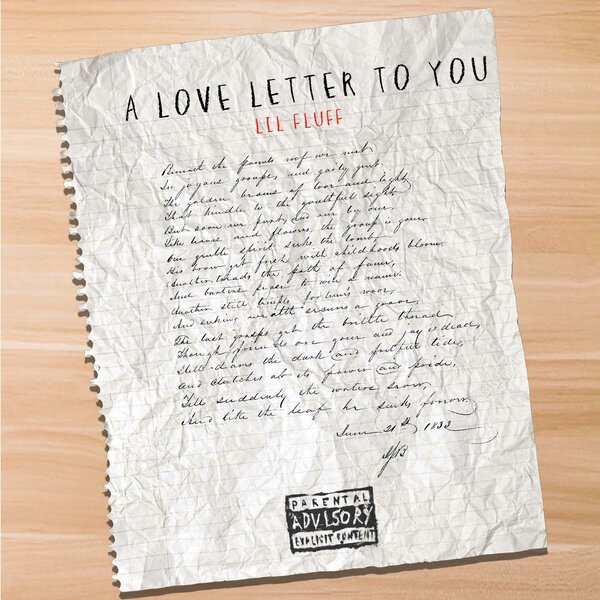 A LOVE LETTER TO YOU
LIL FLUFF
Beneath the parents roof we meet
In joyous groupes, and gaily greet
The golden beams of love and light
That kindle to the youthful sight
But soon we part, and one by one,
Like leaves and flowers, the group is gone,
One gentle spirit seeks the tomb,
His brow yet fresh with childhoods bloom.
Another treads the path of fame,
And barters peace to win a name.
Another still tempts fortunes wave,
And seeking wealth a grave,
The last grasps yet the brittle thread
Though friends are gone and joy is dead,
Still dares the dark and fretful tide,
And clutches at its power and pride,
Till suddenly the waters sever,
And like the leaf he sinks forever.
June 21st 1832
PARENTAL
ADVISORY
EXPLICIT CONTENT